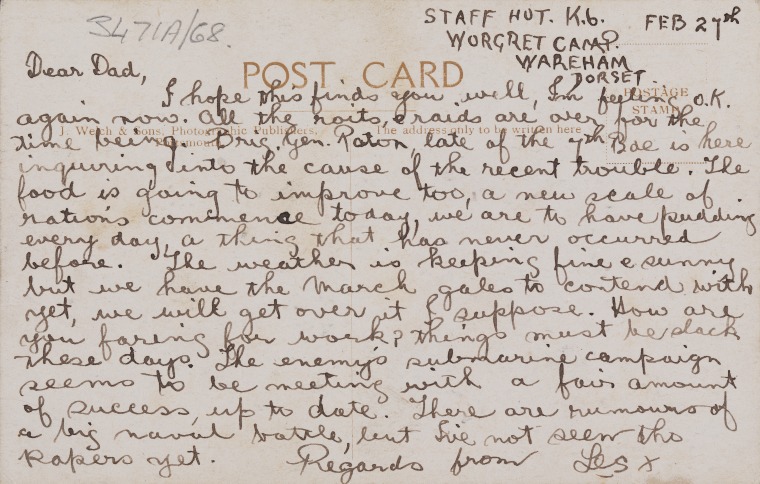 3471A/68.
STAFF HUT. K.6.
FEB 27th
WORGRET CAMP.
WAREHAM
DORSET.
Dear Dad,
POST CARD
I hope this finds you well, I'm feeling O.K.
POSTAGE
STAMP
again now. All the roits, & raids are over for the
J. Welch & Sons, Photographic Publishers,
The address only to be written here
time being. Brig. Gen. Paton, late of the 7th Bde is here
inquiring into the cause of the recent trouble. The
food is going to improve too, a new scale of
rations commence today, we are to have pudding
every day, a thing that has never occurred
before. The weather is keeping fine & sunny
but we have the March gales to contend with
yet, we will get over it I suppose. How are
you faring for work? things must be slack
these days. The enemy's submarine campaign
seems to be meeting with a fair amount
of success, up to date. There are rumours of
a big naval battle, but I've not seen the
papers yet. Regards from Les x